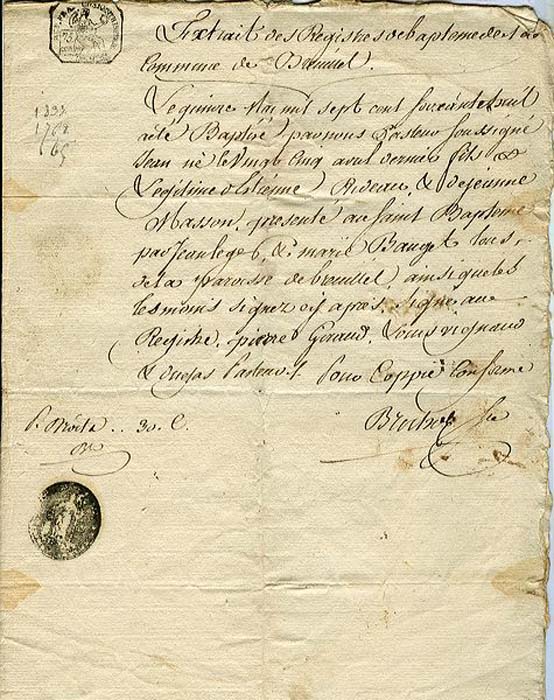 Extrait des Registres de bapteme de la
Commune de Breuiel.
Le quinze Mai mil sept cent soixante huit
a été Baptisé par nous Pasteur soussigné
Jean né le Vingt Cinq avril dernier fils
Légitime d'Etienne Rideau, & de jeanne
Masson, presenté au Saint Bapteme
par Jean & marie Bauget tous
de la paroisse de breuillel, ainsi que les
temoins signez cy après, signé au
Registre, pierre Giraud, Louis vignaud
& dugas Pasteur. Pour Coppie Conforme
P. Droits .. 30. C.
75
1333
1768
65